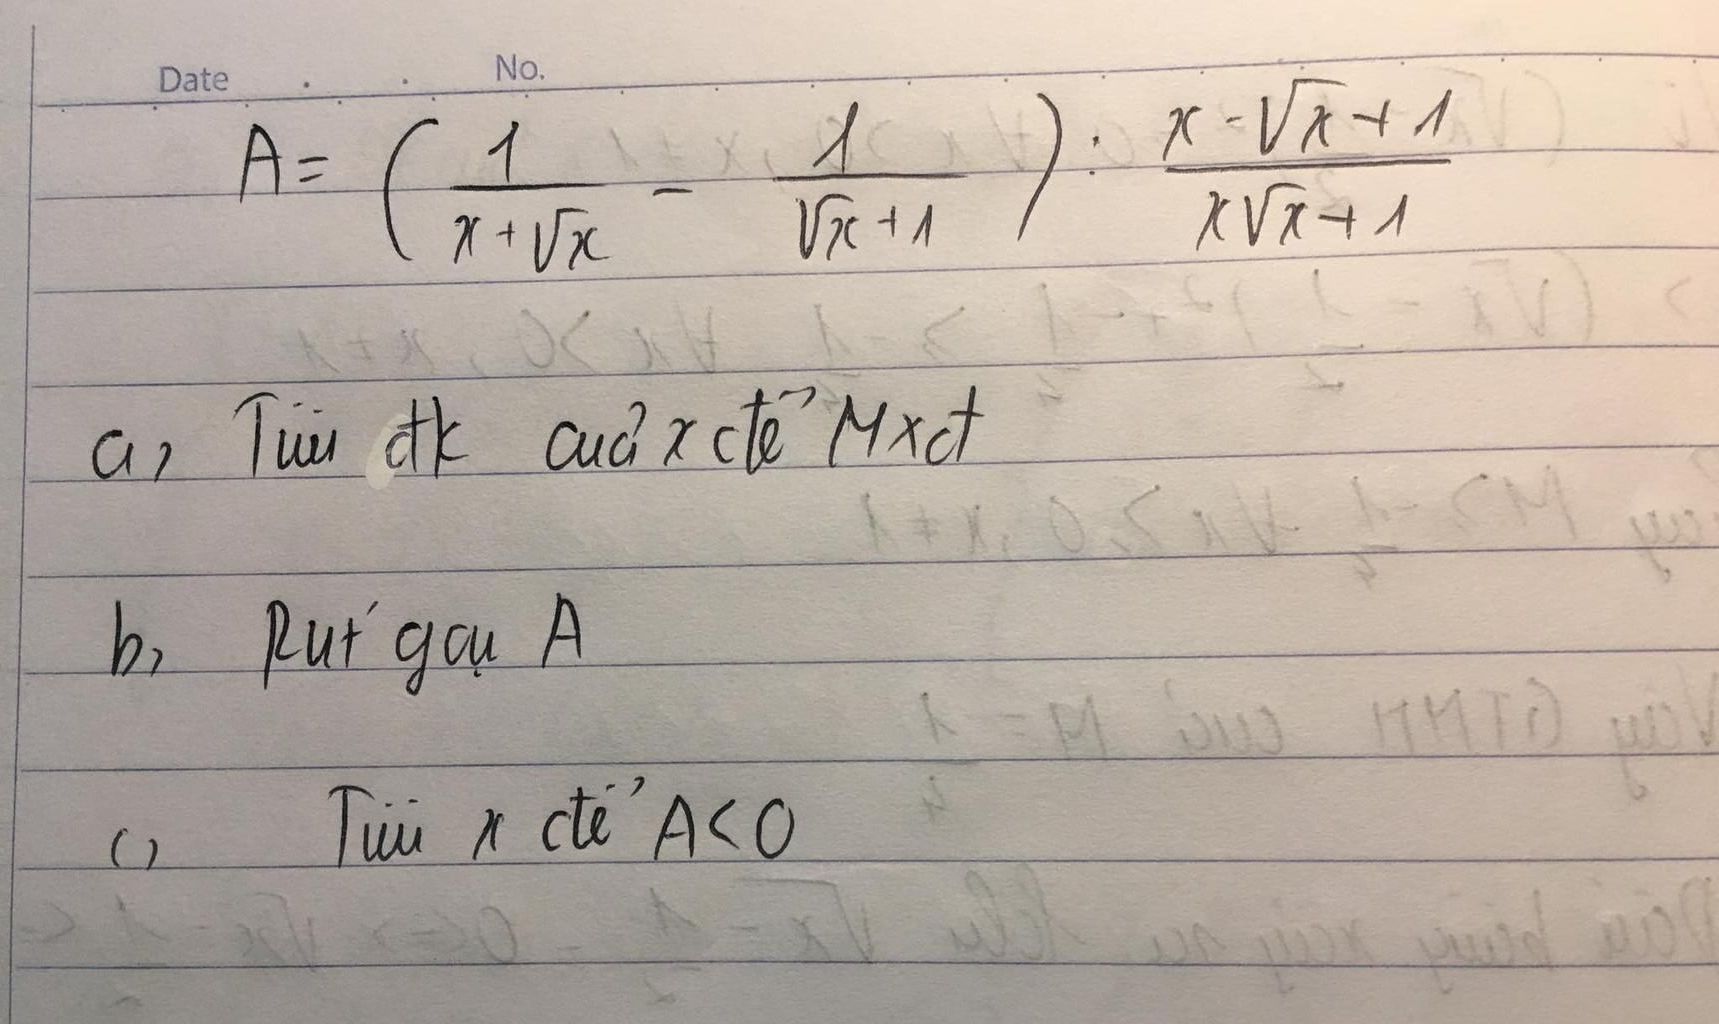 Date No.
A = ( 1/(x+√x) - 1/(√x+1) ) : (x-√x+1)/(x√x+1)
a, Tìm đk của x để M xđ
b, Rút gọn A
c, Tìm x để A<0